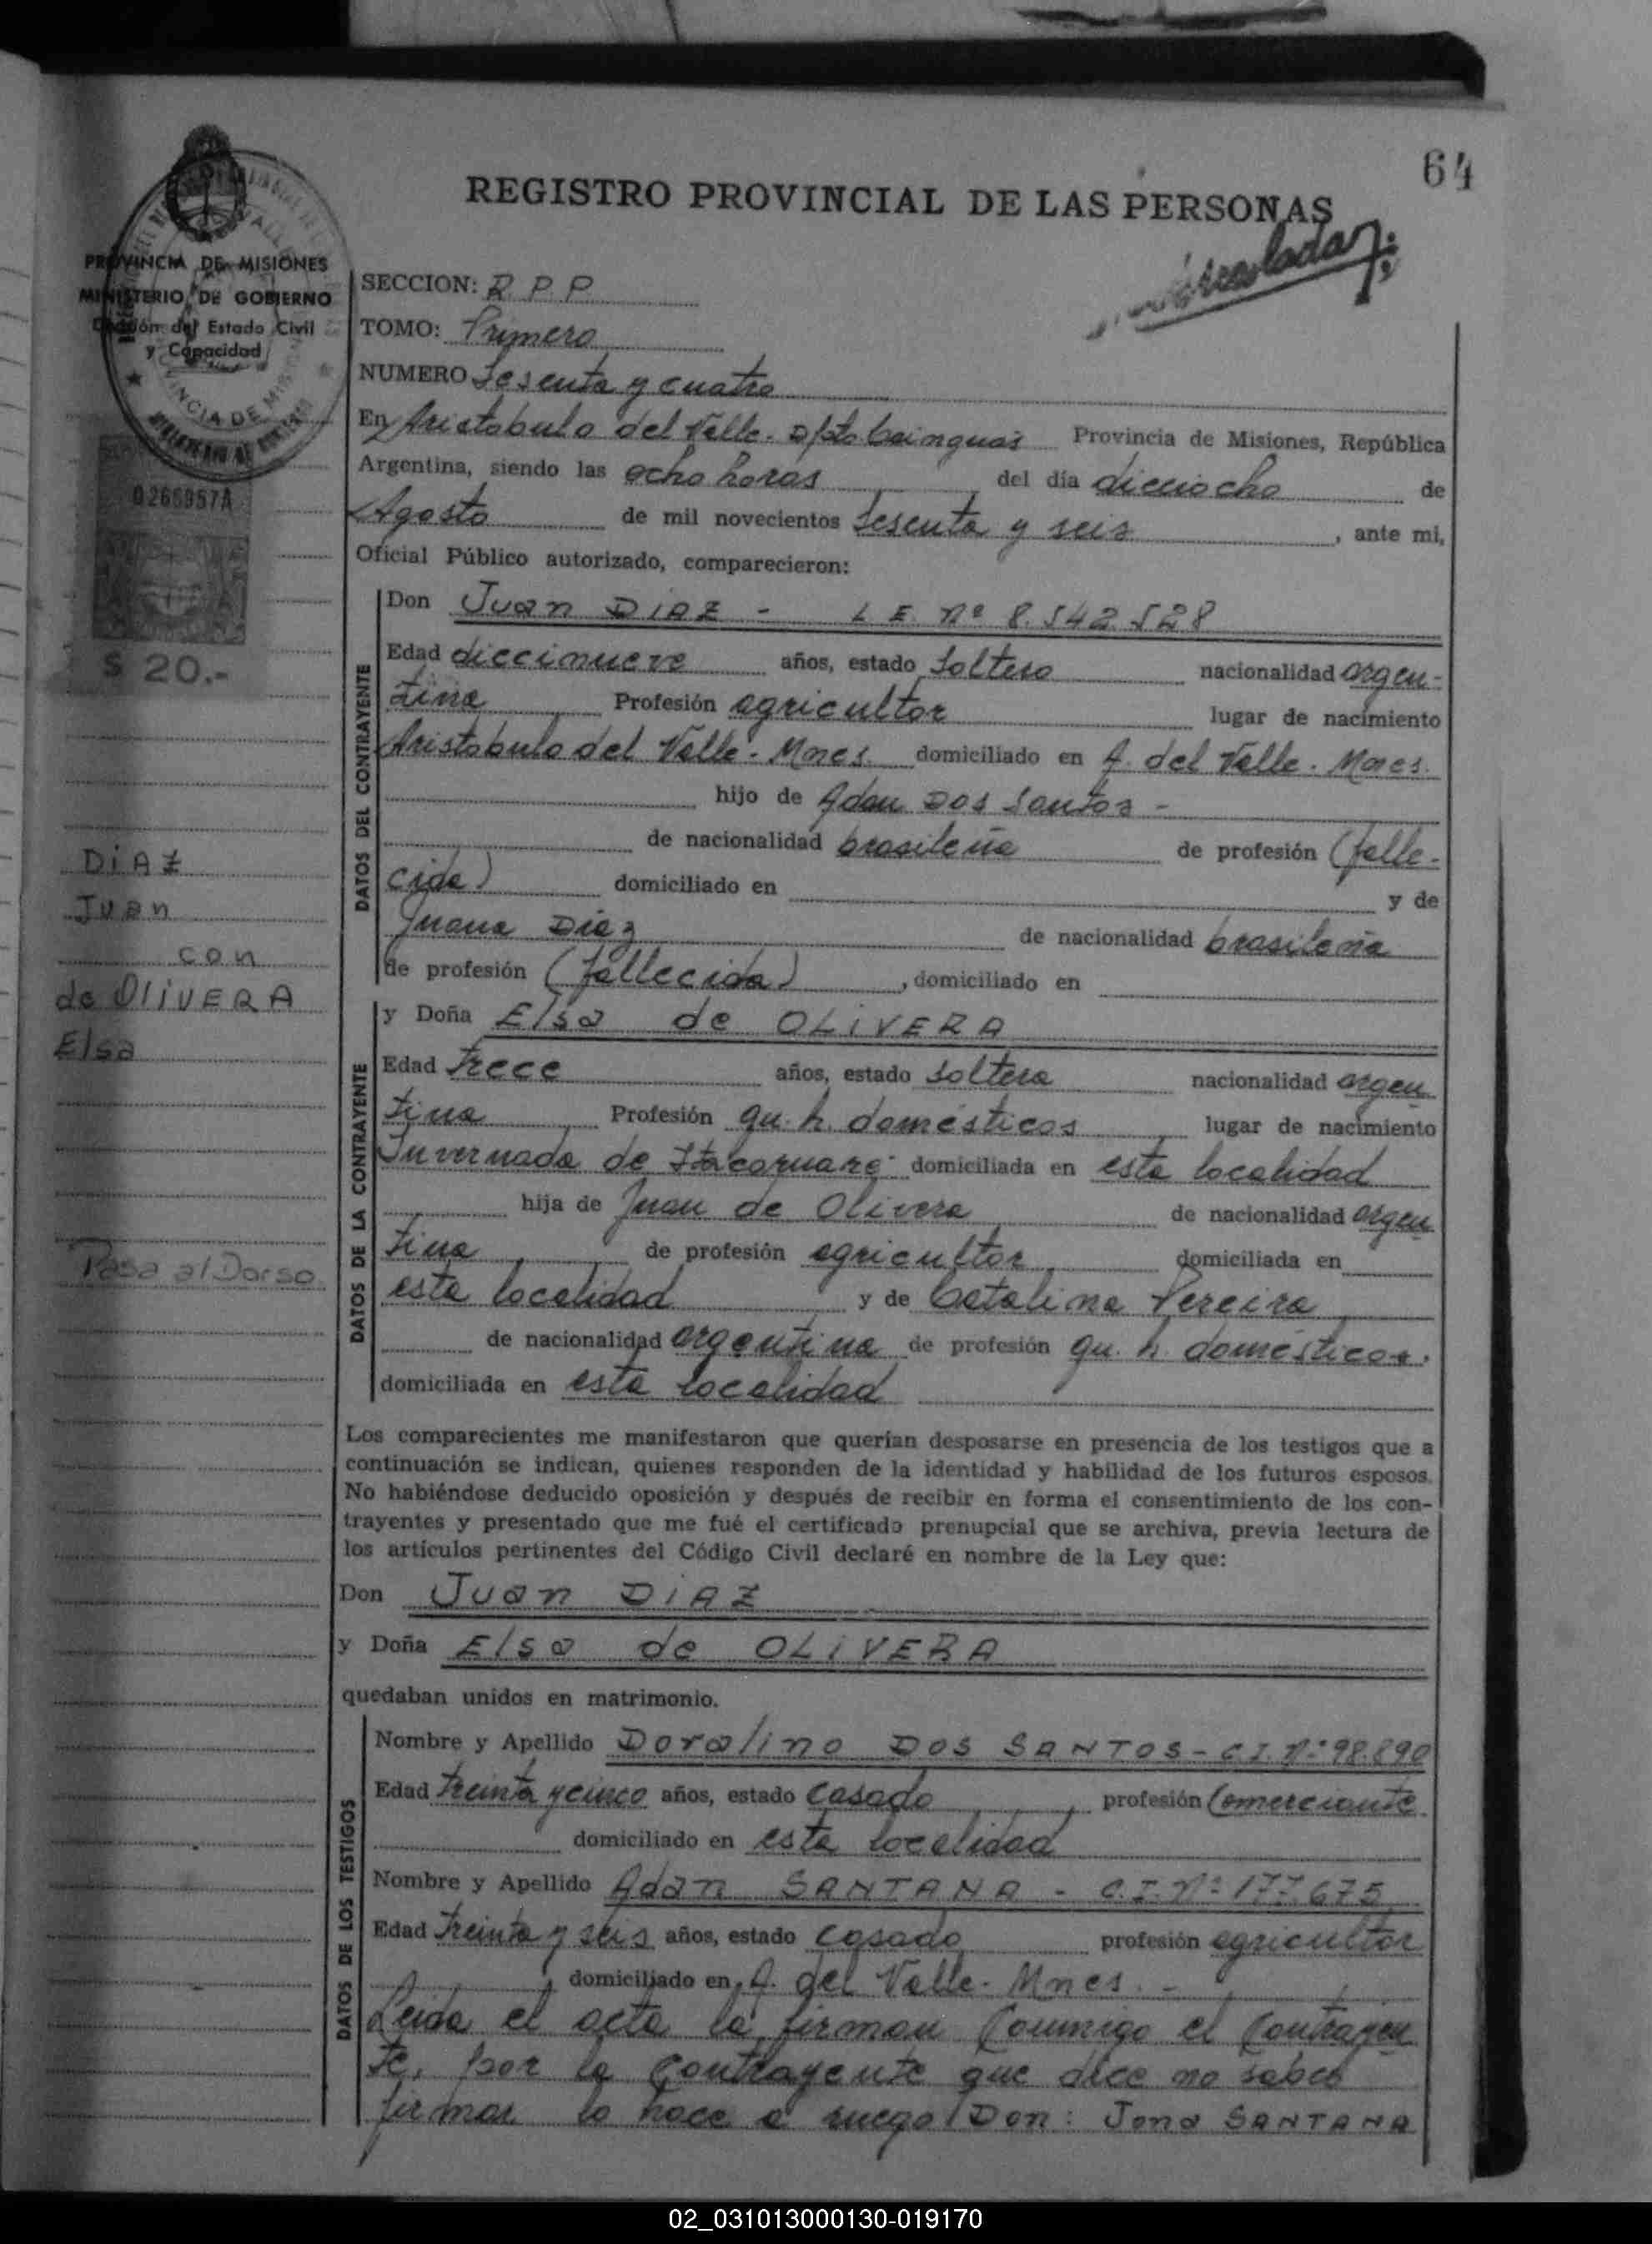 64
REGISTRO PROVINCIAL DE LAS PERSONAS
PROVINCIA DE MISIONES
MINISTERIO DE GOBIERNO
del Estado Civil
y Capacidad
0265957A
$ 20.-
SECCION: R. P. P.
TOMO: Primero
NUMERO Sesenta y cuatro
En Aristobulo del Valle. Dpto Cainguás Provincia de Misiones, República
Argentina, siendo las ocho horas del día dieciocho de
Agosto de mil novecientos sesenta y seis, ante mi,
Oficial Público autorizado, comparecieron:
DATOS DEL CONTRAYENTE
Don Juan DIAZ - L E. Nº 8.542.528
Edad diecinueve años, estado soltero nacionalidad argen-
tina Profesión agricultor lugar de nacimiento
Aristobulo del Valle - Mnes. domiciliado en A. del Valle. Mnes.
hijo de Adan Dos Santos -
de nacionalidad brasileña de profesión (falle-
cido) domiciliado en y de
Juana Diaz de nacionalidad brasileña
de profesión (fallecida), domiciliado en
DIAZ
Juan
con
de OLIVERA
Elsa
Pasa al Dorso
DATOS DE LA CONTRAYENTE
y Doña Elsa de OLIVERA
Edad trece años, estado soltera nacionalidad argen
tina Profesión qu. h. domésticos lugar de nacimiento
Invernada de Itacaruaré domiciliada en esta localidad
hija de Juan de Olivera de nacionalidad argen
tina de profesión agricultor domiciliada en
esta localidad y de Catalina Pereira
de nacionalidad argentina de profesión qu. h. domésticos.
domiciliada en esta localidad
Los comparecientes me manifestaron que querían desposarse en presencia de los testigos que a
continuación se indican, quienes responden de la identidad y habilidad de los futuros esposos.
No habiéndose deducido oposición y después de recibir en forma el consentimiento de los con-
trayentes y presentado que me fué el certificado prenupcial que se archiva, previa lectura de
los artículos pertinentes del Código Civil declaré en nombre de la Ley que:
Don Juan DIAZ
y Doña Elsa de OLIVERA
quedaban unidos en matrimonio.
DATOS DE LOS TESTIGOS
Nombre y Apellido Doralino DOS SANTOS - C.I. Nº 98.890
Edad treinta y cinco años, estado casado profesión Comerciante
domiciliado en esta localidad
Nombre y Apellido Adan SANTANA - C.I. Nº 177.675
Edad treinta y seis años, estado casado profesión agricultor
domiciliado en A. del Valle - Mnes. -
Leida el acta la firman Conmigo el Contrayen
te, por la Contrayente que dice no saber
firmar lo hace a ruego Don: Jona SANTANA
02_031013000130-019170